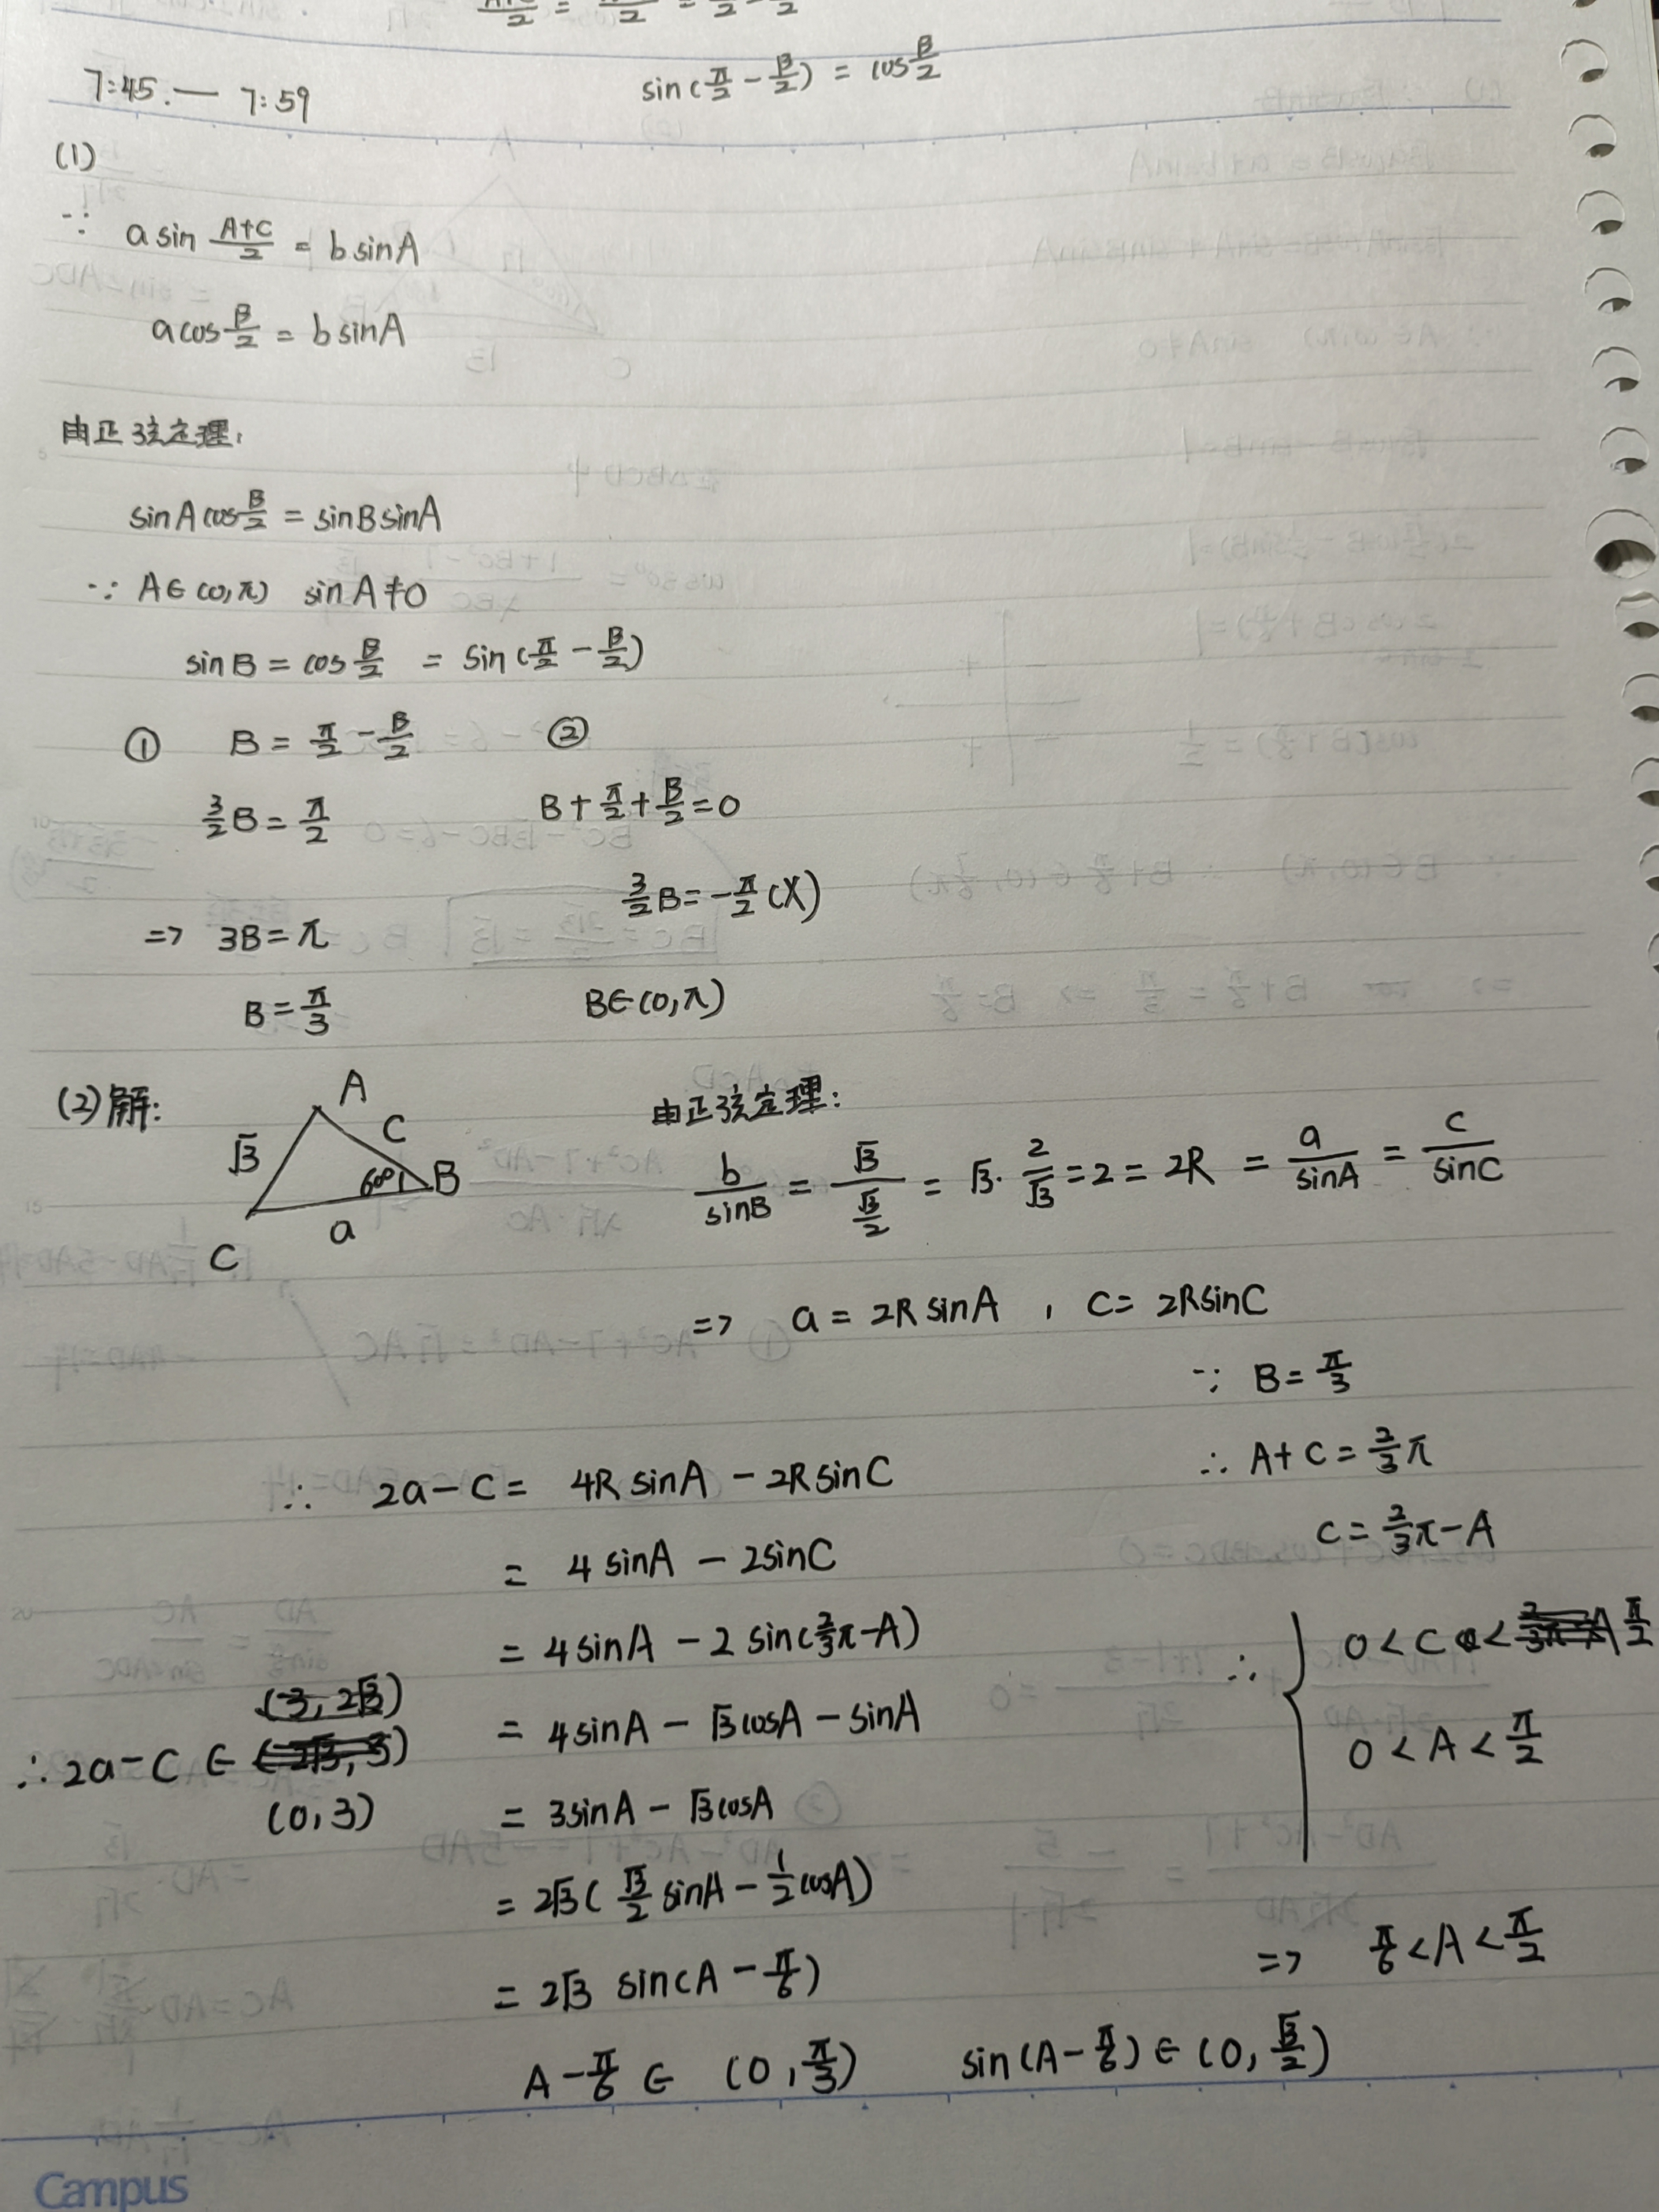 7:45.— 7:59
sin(π/2 - B/2) = cos B/2
(1)
∵ a sin (A+C)/2 = b sinA
a cos B/2 = b sinA
由正弦定理:
sinA cos B/2 = sinB sinA
∵ A∈(0,π) sinA≠0
sinB = cos B/2 = sin(π/2 - B/2)
① B = π/2 - B/2
3/2 B = π/2
=> 3B = π
B = π/3
②
B + π/2 + B/2 = 0
3/2 B = -π/2 (X)
B∈(0,π)
(2)解:
A
√3
C
60°
B
a
C
由正弦定理:
b/sinB = √3/(√3/2) = √3 · 2/√3 = 2 = 2R = a/sinA = c/sinC
=> a = 2R sinA , c = 2RsinC
∵ B = π/3
∴ A+C = 2/3 π
C = 2/3 π - A
∴ { 0 < C < π/2
0 < A < π/2
=> π/6 < A < π/2
∴ 2a - C = 4R sinA - 2R sinC
= 4 sinA - 2sinC
= 4sinA - 2 sin(2/3 π - A)
= 4sinA - √3cosA - sinA
= 3sinA - √3cosA
= 2√3 ( √3/2 sinA - 1/2 cosA)
= 2√3 sin(A - π/6)
A - π/6 ∈ (0, π/3) sin(A - π/6) ∈ (0, √3/2)
∴ 2a - C ∈
(0, 3)
Campus